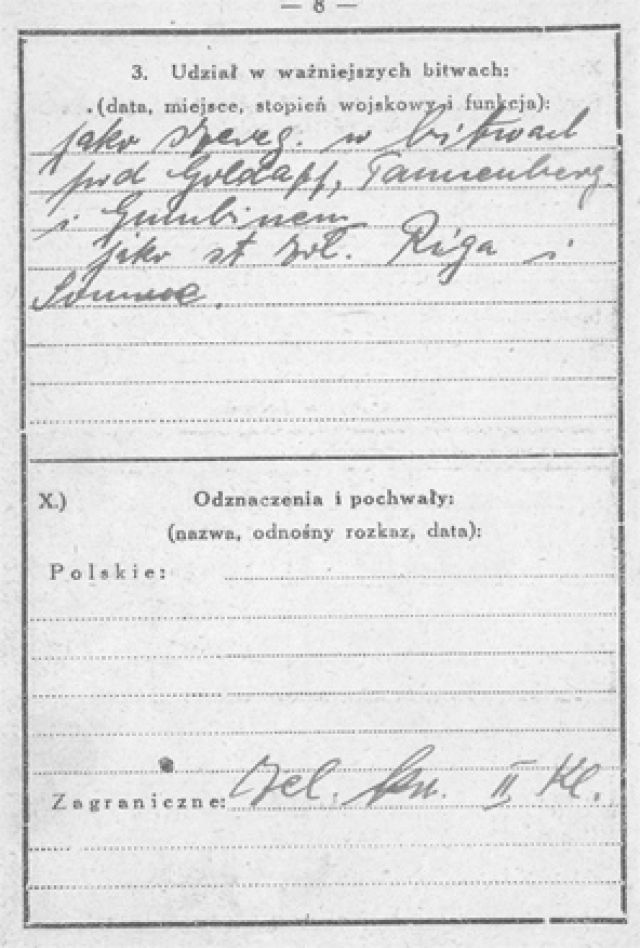 — 8 —
3. Udział w ważniejszych bitwach:
(data, miejsce, stopień wojskowy i funkcja):
jako szereg. w bitwach
pod Goldapp, Tannenberg
i Gumbinem
jako st. żoł. Riga i
Somme.
X.) Odznaczenia i pochwały:
(nazwa, odnośny rozkaz, data):
Polskie:
Zagraniczne: Żel. Krz. II Kl.